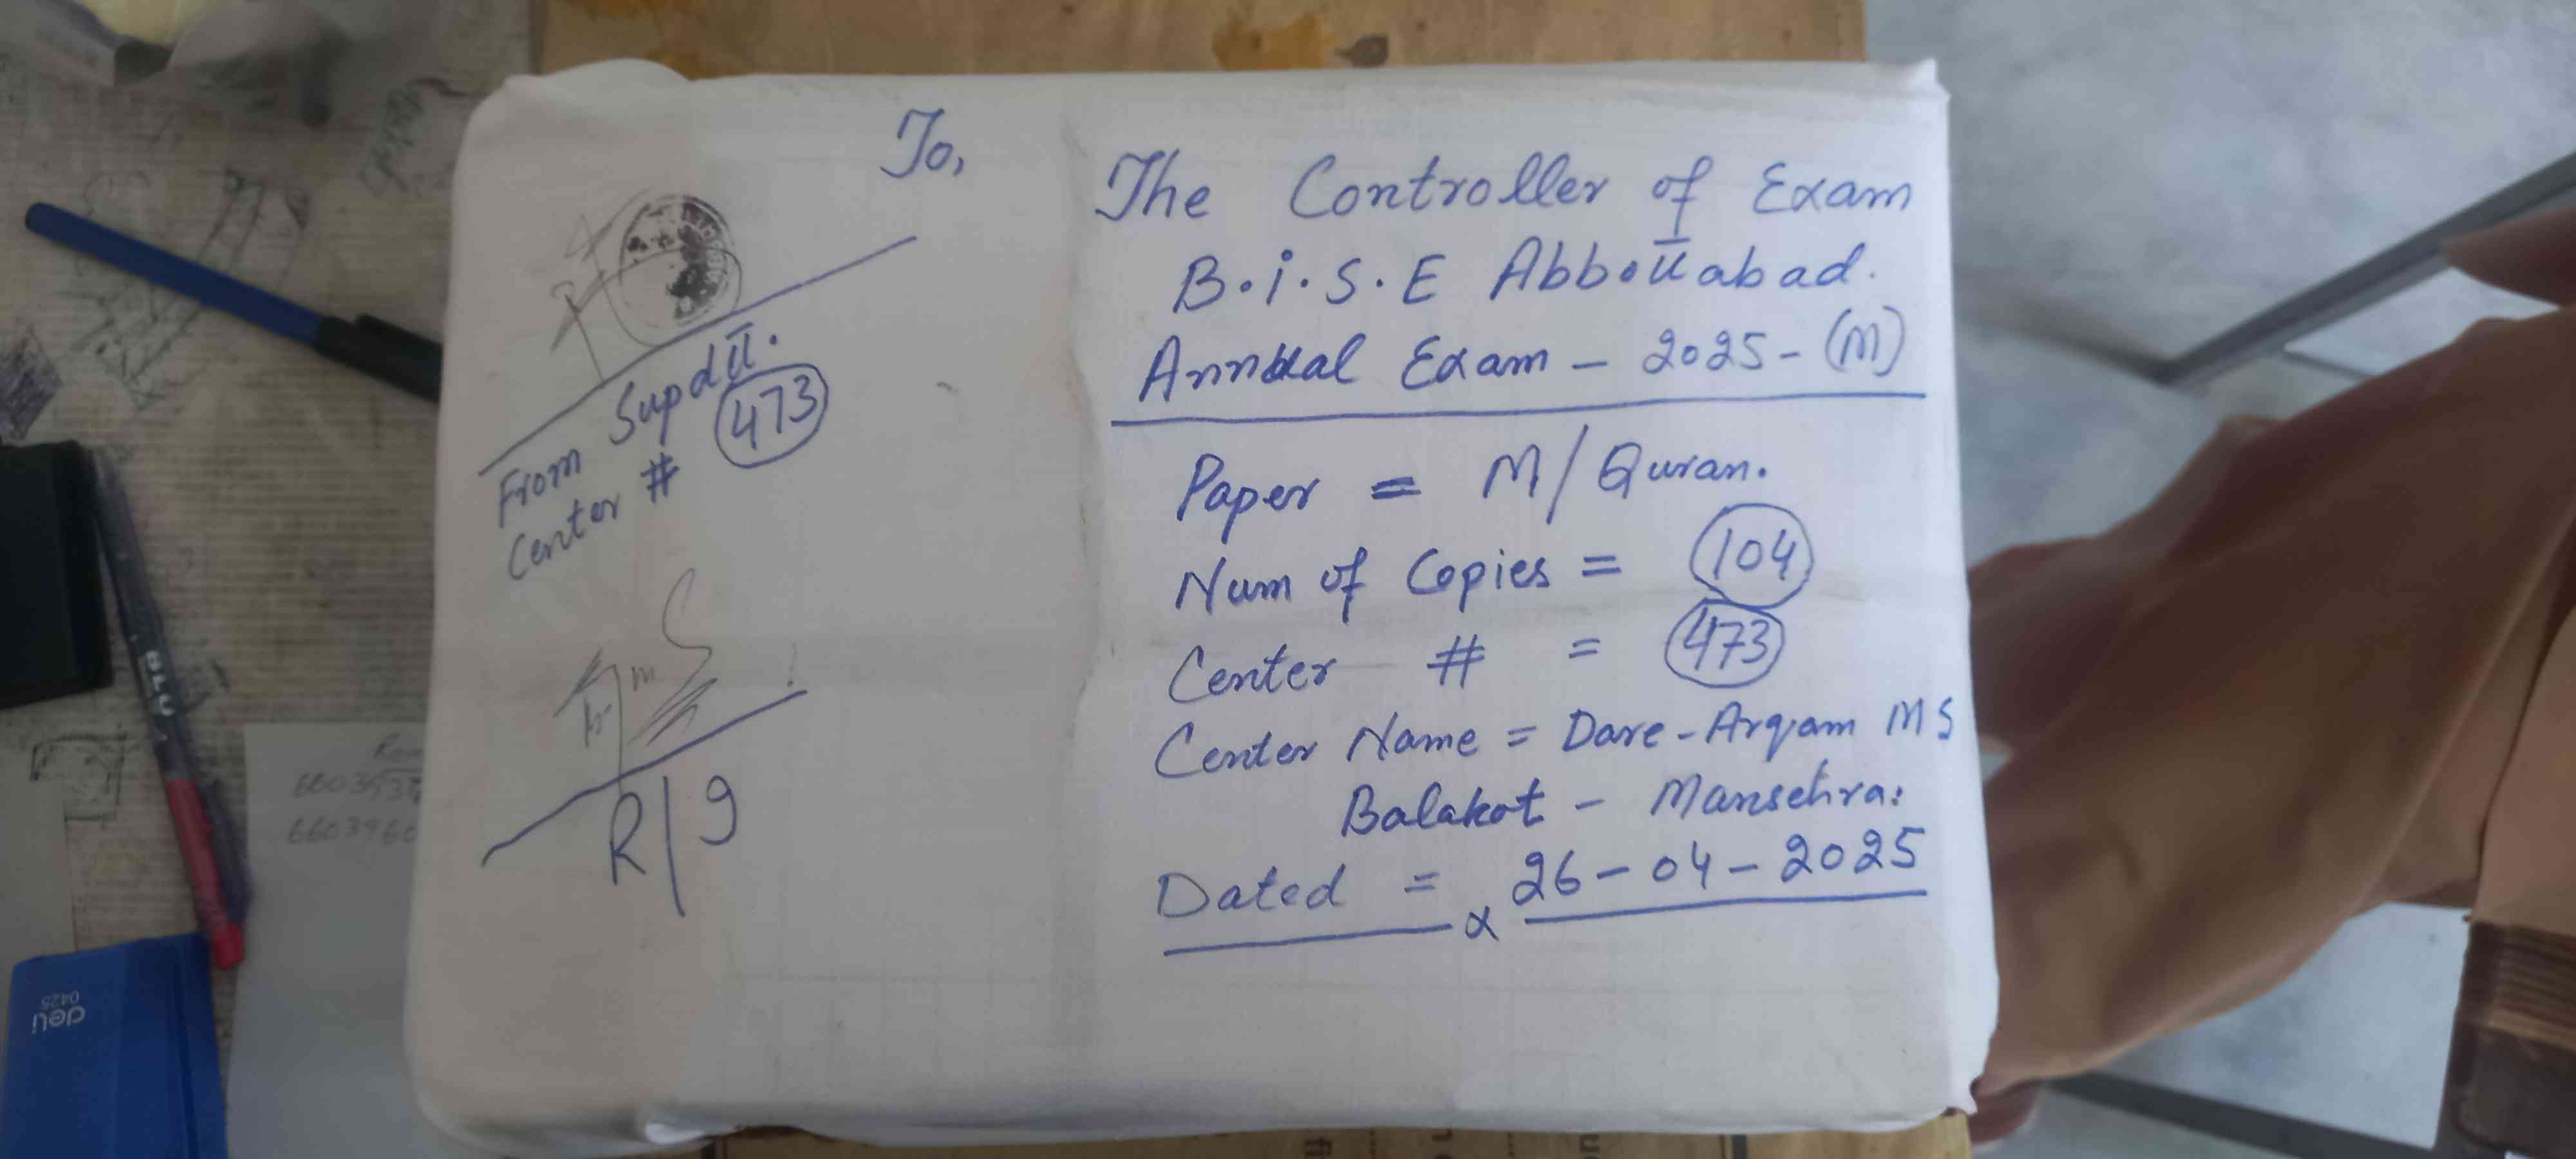 To,
The Controller of Exam
B.i.S.E Abbottabad.
Annual Exam - 2025 - (M)
Paper = M/Quran.
Num of Copies = 104
Center # = 473
Center Name = Dare-Arqam MS
Balakot - Mansehra:
Dated = 26-04-2025
From Supdtt.
Center # 473
R/9
BLU
deli
0425